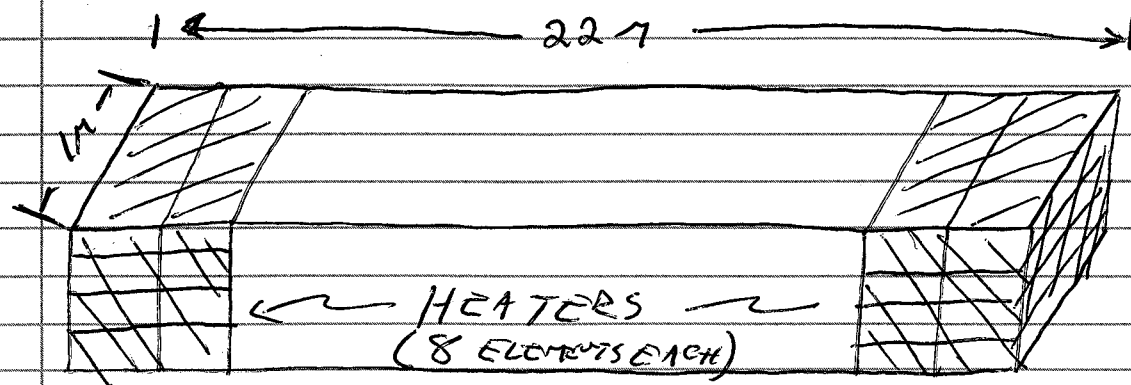 227
HEATERS
(8 ELEMENTS EACH)